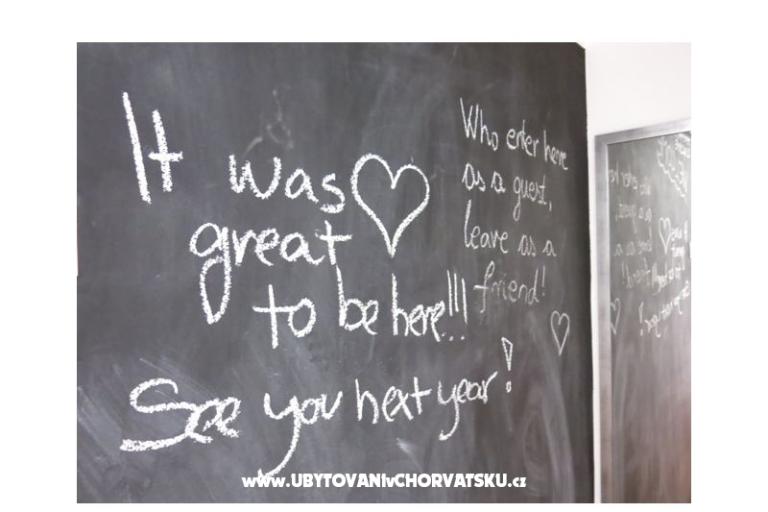 It
was
great
to be here!!!
See you next year!
Who enter here
as a guest,
leave as a
friend!
www.UBYTOVANIvCHORVATSKU.cz